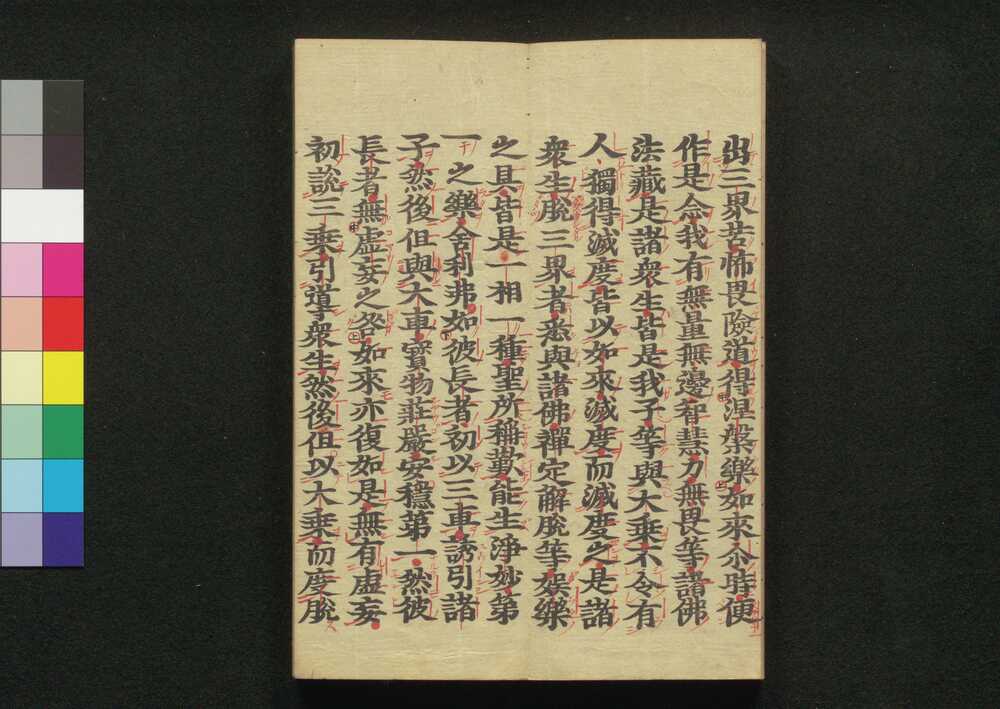 出三界苦怖畏險道得涅槃樂如來尒時便
作是念我有無量無邊智慧力無畏等諸佛
法藏是諸衆生皆是我子等與大乘不令有
人獨得滅度皆以如來滅度而滅度之是諸
衆生脫三界者悉與諸佛禪定解脫等娛樂
之具皆是一相一種聖所稱歎能生淨妙第
一之樂舍利弗如彼長者初以三車誘引諸
子然後但與大車寶物莊嚴安穩第一然彼
長者無虛妄之咎如來亦復如是無有虛妄
初說三乘引導衆生然後但以大乘而度脫